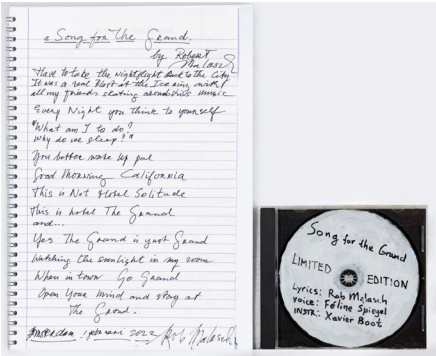 a Song for The Grand.
by Robert
Malasch
Have to take the nightflight back to the City
It was a real at the Ice rink with
all my friends skating music
Every Night you think to yourself
"What am I to do?
Why do we sleep?"
You better wake up pal
Good Morning California
This is Not Hotel Solitude
This is hotel The Grand
and...
Yes The Grand is just Grand
Watching the sunlight in my room
When in town Go Grand
Open Your mind and stay at
The Grand.
Amsterdam, 2022 Rob Malasch
Song for the Grand
LIMITED EDITION
Lyrics: Rob Malasch
Voice: Féline Spiegel
INSTR: Xavier Boot